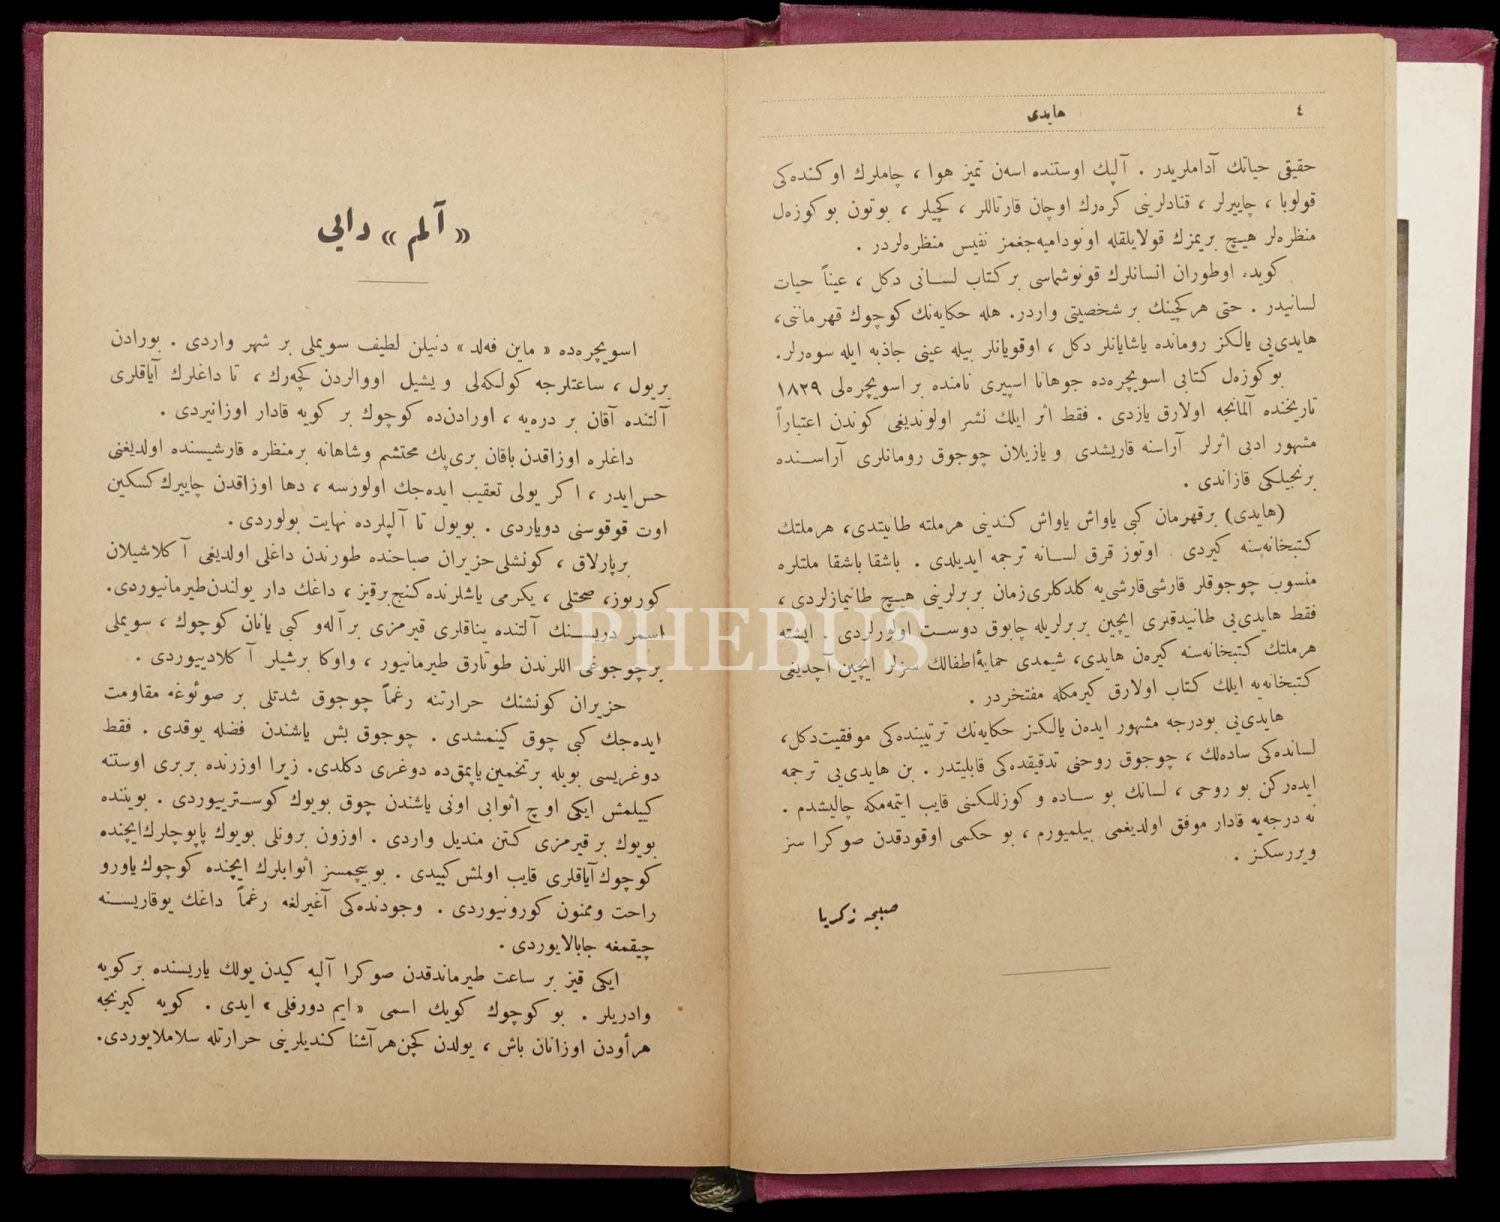 ٤
هايدى
حقيقى حياتك آداملريدر . آلپك اوستنده اسه‌ن تميز هوا ، چاملرك اوكنده‌كى
قولوبا ، چاييرلر ، قنادلرينى كره‌رك اوچان قارتاللر ، كچيلر ، بوتون بو كوزه‌ل
منظره‌لر هيچ بريمزك قولايلقله اونوداميه‌جغمز نفيس منظره‌لردر .
كويده اوطوران انسانلرك قونوشماسى بر كتاب لسانى دكل ، عيناً حيات
لسانيدر . حتى هر كچينك بر شخصيتى واردر. هله حكايه‌نك كوچوك قهرماننى،
هايدى‌يى يالكز رومانده ياشايانلر دكل ، اوقويانلر بيله عينى جاذبه ايله سوه‌رلر.
بو كوزه‌ل كتابى اسويچره‌ده جوهانا اسپيرى نامنده بر اسويچره‌لى ١٨٢٩
تاريخنده آلمانجه اولارق يازدى . فقط اثر ايلك نشر اولونديغى كوندن اعتباراً
مشهور ادبى اثرلر آراسنه قاريشدى و يازيلان چوجوق رومانلرى آراسنده
برنجيلكى قازاندى .
(هايدى) بر قهرمان كبى ياواش ياواش كندينى هر ملته طانيتدى، هر ملتك
كتبخانه‌سنه كيردى . اوتوز قرق لسانه ترجمه ايديلدى . باشقا باشقا ملتلره
منسوب چوجوقلر قارشى قارشى‌يه كلدكلرى زمان بربرلرينى هيچ طانيمازلردى ،
فقط هايدى‌يى طانيدقلرى ايچين بربرلريله چابوق دوست اولورلردى . ايشته
هر ملتك كتبخانه‌سنه كيره‌ن هايدى، شيمدى حمايۀ اطفالك سزلر ايچين آچديغى
كتبخانه‌يه ايلك كتاب اولارق كيرمكله مفتخردر .
هايدى‌يى بودرجه مشهور ايده‌ن يالكز حكايه‌نك ترتيبنده‌كى موفقيت دكل،
لسانده‌كى ساده‌لك ، چوجوق روحنى تدقيقده‌كى قابليتدر . بن هايدى‌يى ترجمه
ايده‌ركن بو روحى ، لسانك بو ساده و كوزللكنى قايب ايتمه‌مكه چاليشدم .
نه درجه‌يه قادار موفق اولديغمى بيلميورم ، بو حكمى اوقودقدن صوكرا سز
ويررسكز .
صبيحه زكريا
« آلم » دايى
اسويچره‌ده « ماين فه‌لد » دنيلن لطيف سويملى بر شهر واردى . بورادن
بر يول ، ساعتلرجه كولكه‌لى و يشيل اووالردن كچه‌رك ، تا داغلرك آياقلرى
آلتنده آقان بر دره‌يه ، اورادن‌ده كوچوك بر كويه قادار اوزانيردى .
داغلره اوزاقدن باقان برى پك محتشم وشاهانه بر منظره قارشيسنده اولديغنى
حس ايدر ، اكر يولى تعقيب ايده‌جك اولورسه ، دها اوزاقدن چاييرك كسكين
اوت قوقوسنى دوياردى . بو يول تا آلپلرده نهايت بولوردى .
بر پارلاق ، كونشلى حزيران صباحنده طورندن داغلى اولديغى آكلاشيلان
كوربوز، صحتلى ، يكرمى ياشلرنده كنج بر قيز ، داغك دار يولندن طيرمانيوردى.
اسمر دريسنك آلتنده يناقلرى قيرمزى بر آله‌و كبى يانان كوچوك ، سويملى
بر چوجوغى اللرندن طوتارق طيرمانيور ، واوكا برشيلر آكلادييوردى .
حزيران كونشنك حرارتنه رغماً چوجوق شدتلى بر صوئوغه مقاومت
ايده‌جك كبى چوق كينمشدى . چوجوق بش ياشندن فضله يوقدى . فقط
دوغريسى بويله بر تخمين ياپمق‌ده دوغرى دكلدى. زيرا اوزرنده بربرى اوستنه
كييلمش ايكى اوچ اثوابى اونى ياشندن چوق بويوك كوسترييوردى . بويننده
بويوك بر قيرمزى كتن منديل واردى . اوزون برونلى بويوك پاپوچلرك ايچنده
كوچوك آياقلرى قايب اولمش كبيدى . بو بيچمسز اثوابلرك ايچنده كوچوك ياورو
راحت وممنون كورونيوردى . وجودنده‌كى آغيرلغه رغماً داغك يوقاريسنه
چيقمغه جابالايوردى .
ايكى قيز بر ساعت طيرماندقدن صوكرا آلپه كيدن يولك ياريسنده بر كويه
واردريلر . بو كوچوك كويك اسمى « ايم دورفلى » ايدى . كويه كيرنجه
هر أودن اوزانان باش ، يولدن كچن هر آشنا كنديلرينى حرارتله سلاملايوردى.
PHEBUS